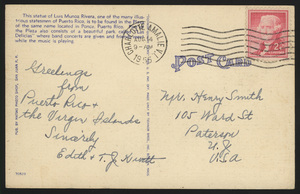 This statue of Luis Munoz Rivera, one of the many illus-
trious statesmen of Puerto Rico, is to be found in the Plaza
of the same name located in Ponce, Puerto Rico. Across
the Plaza also consists of a beautiful park called "Las
Delicias" where band concerts are
while the music is playing.
CHARLOTTE AMALIE V.I.
9 - AM
1956
POST CARD
Greetings
from
Puerto Rico &
the Virgin Islands
Sincerely
Edith & T. J.
Mr. Henry Smith
105 Ward St
Paterson
N. J.
USA